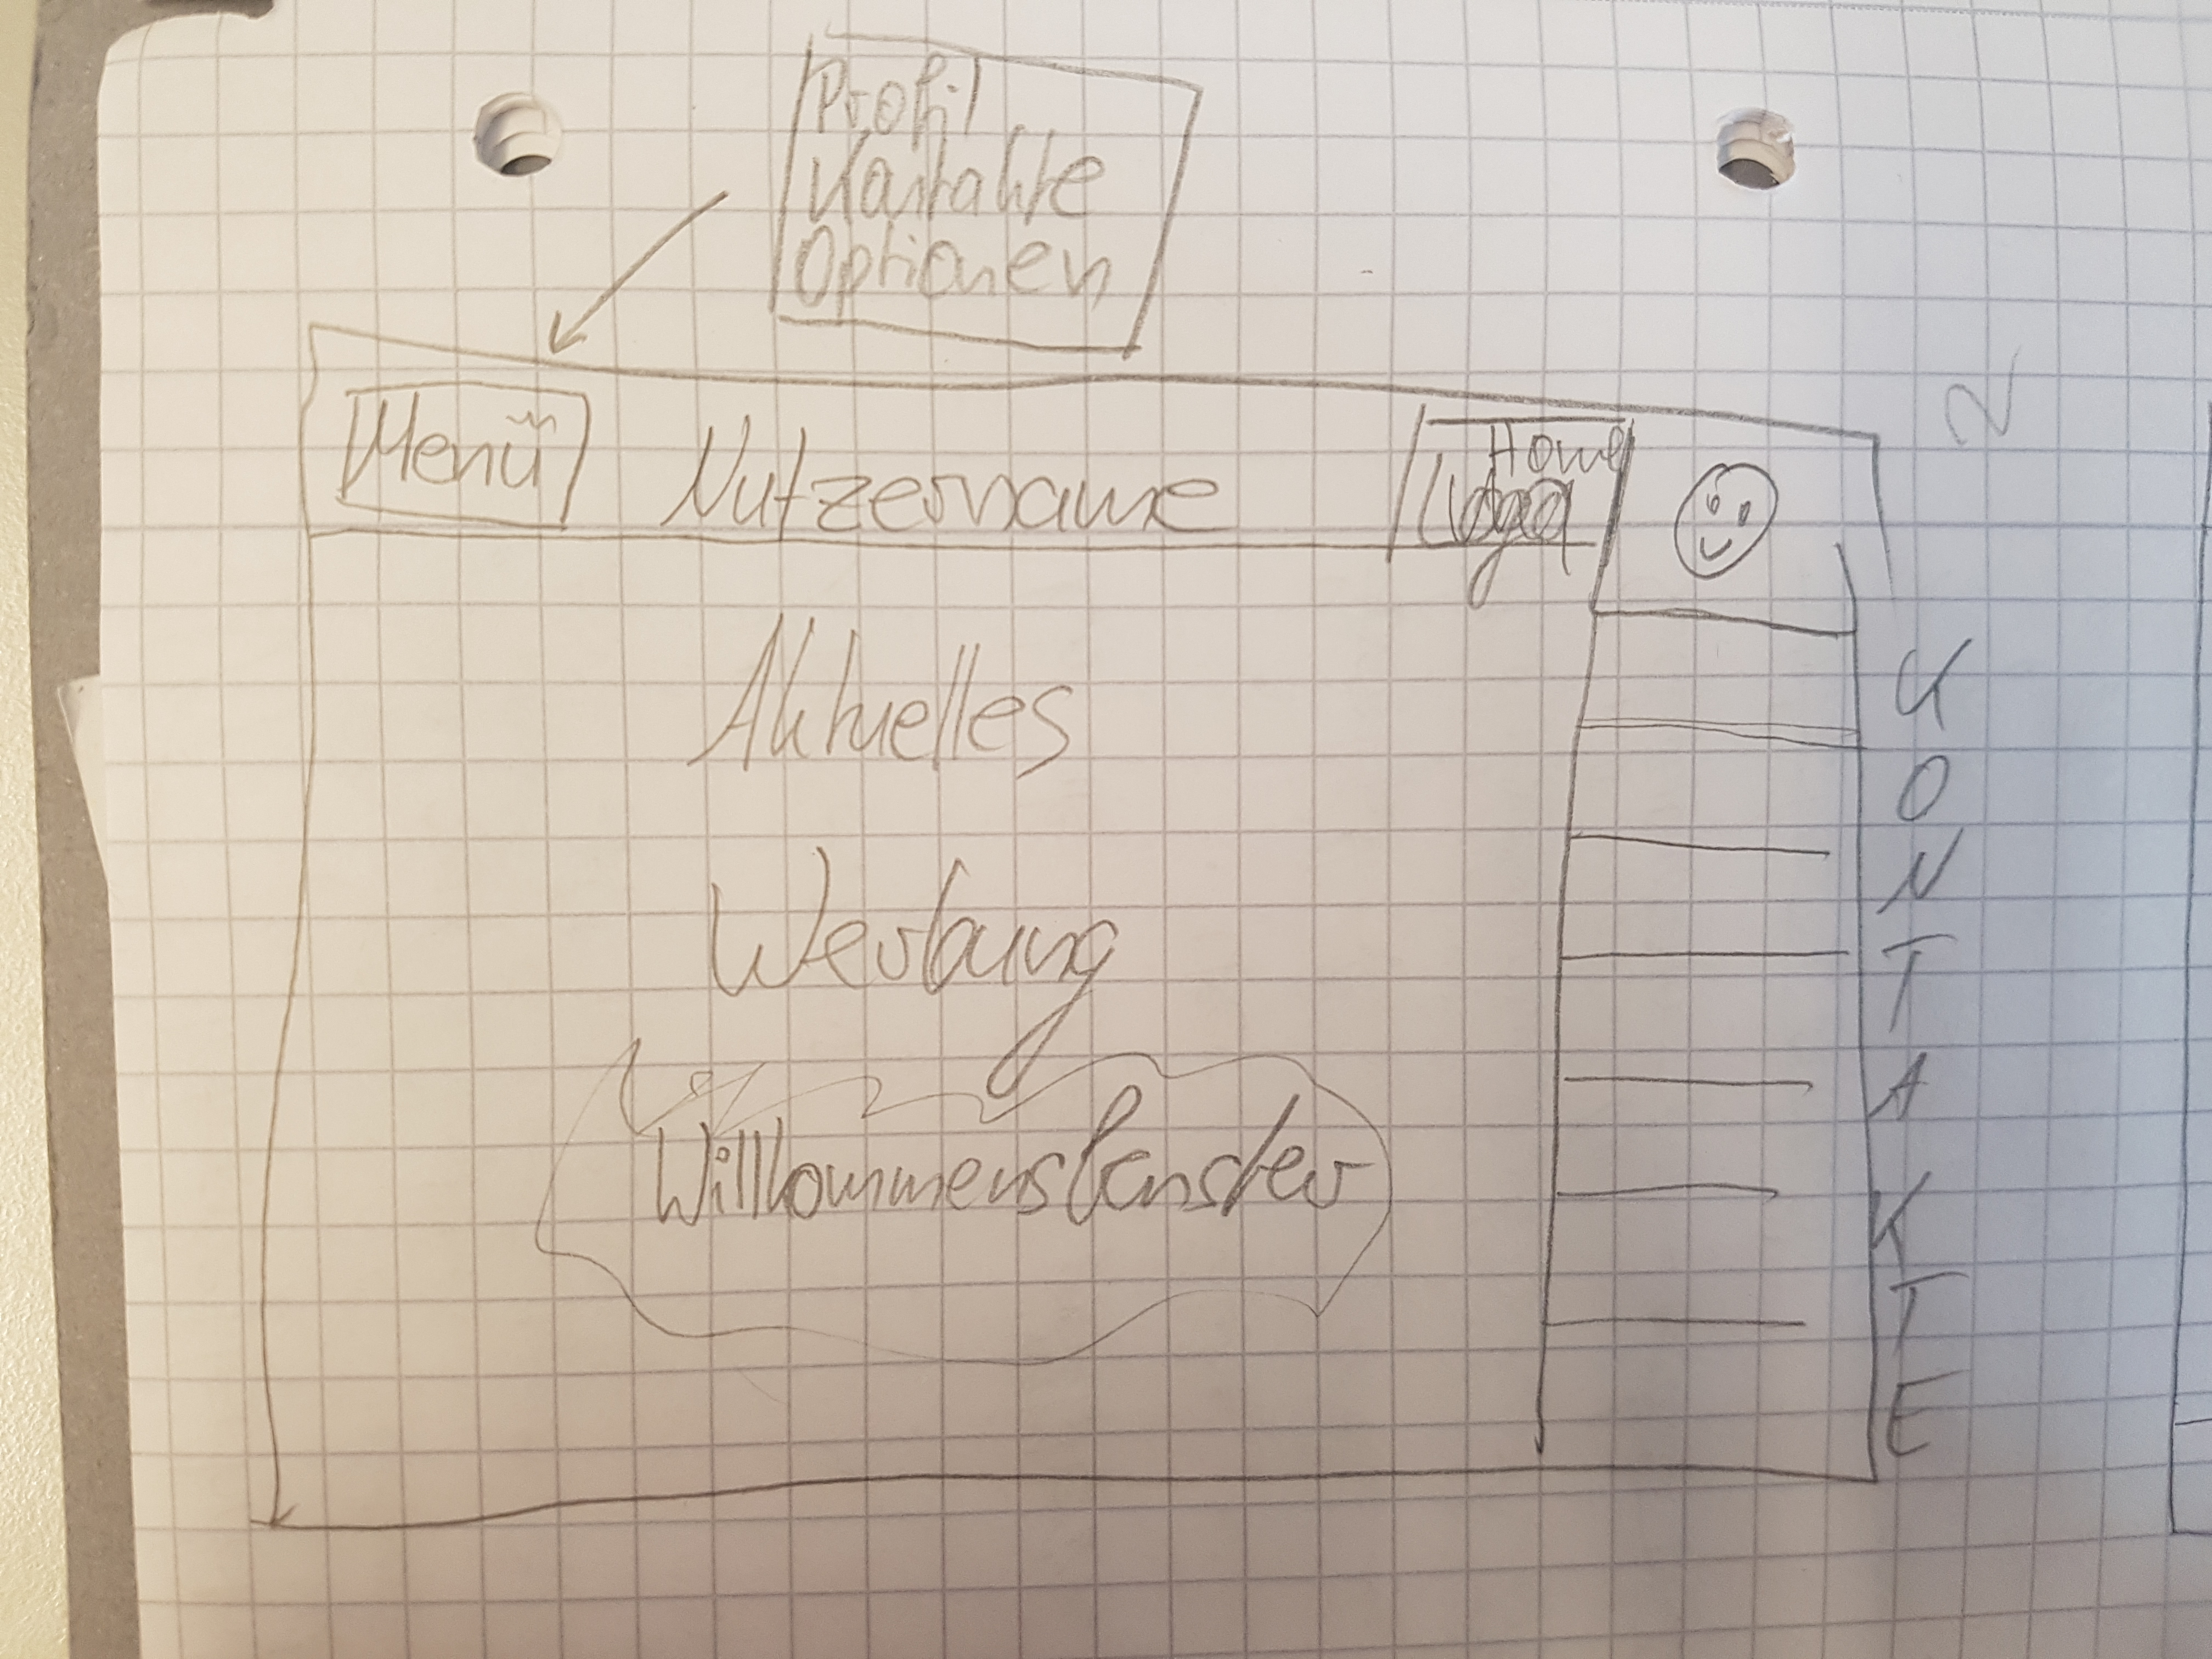 Profil
Kontakte
Optionen
2
Menü
Nutzername
Home
Aktuelles
Werbung
Willkommensfenster
KONTAKTE